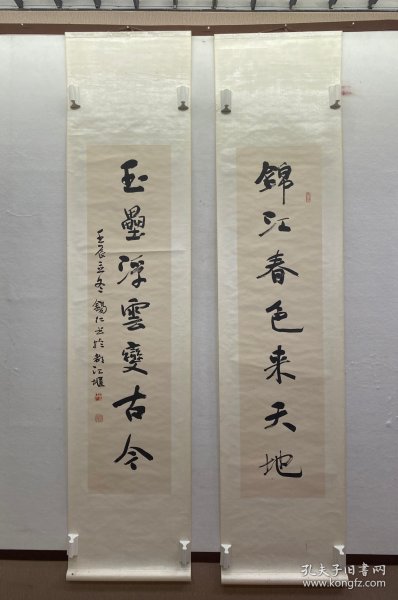 錦江春色来天地
玉壘浮雲變古今
壬辰立冬錫仁书於都江堰
孔夫子旧书网
www.kongfz.com